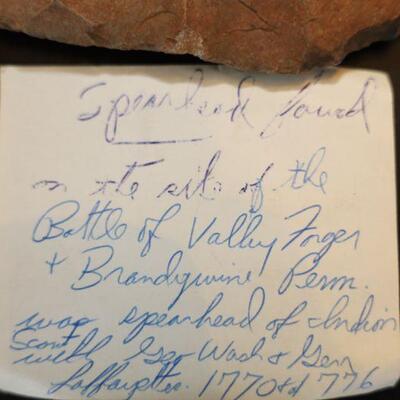 Spearhead found
on the site of the
Battle of Valley Forger
+ Brandywine Penn.
was spearhead of Indian
Scout
with Geo Wash & Genr
Laffayettes. 1770 776